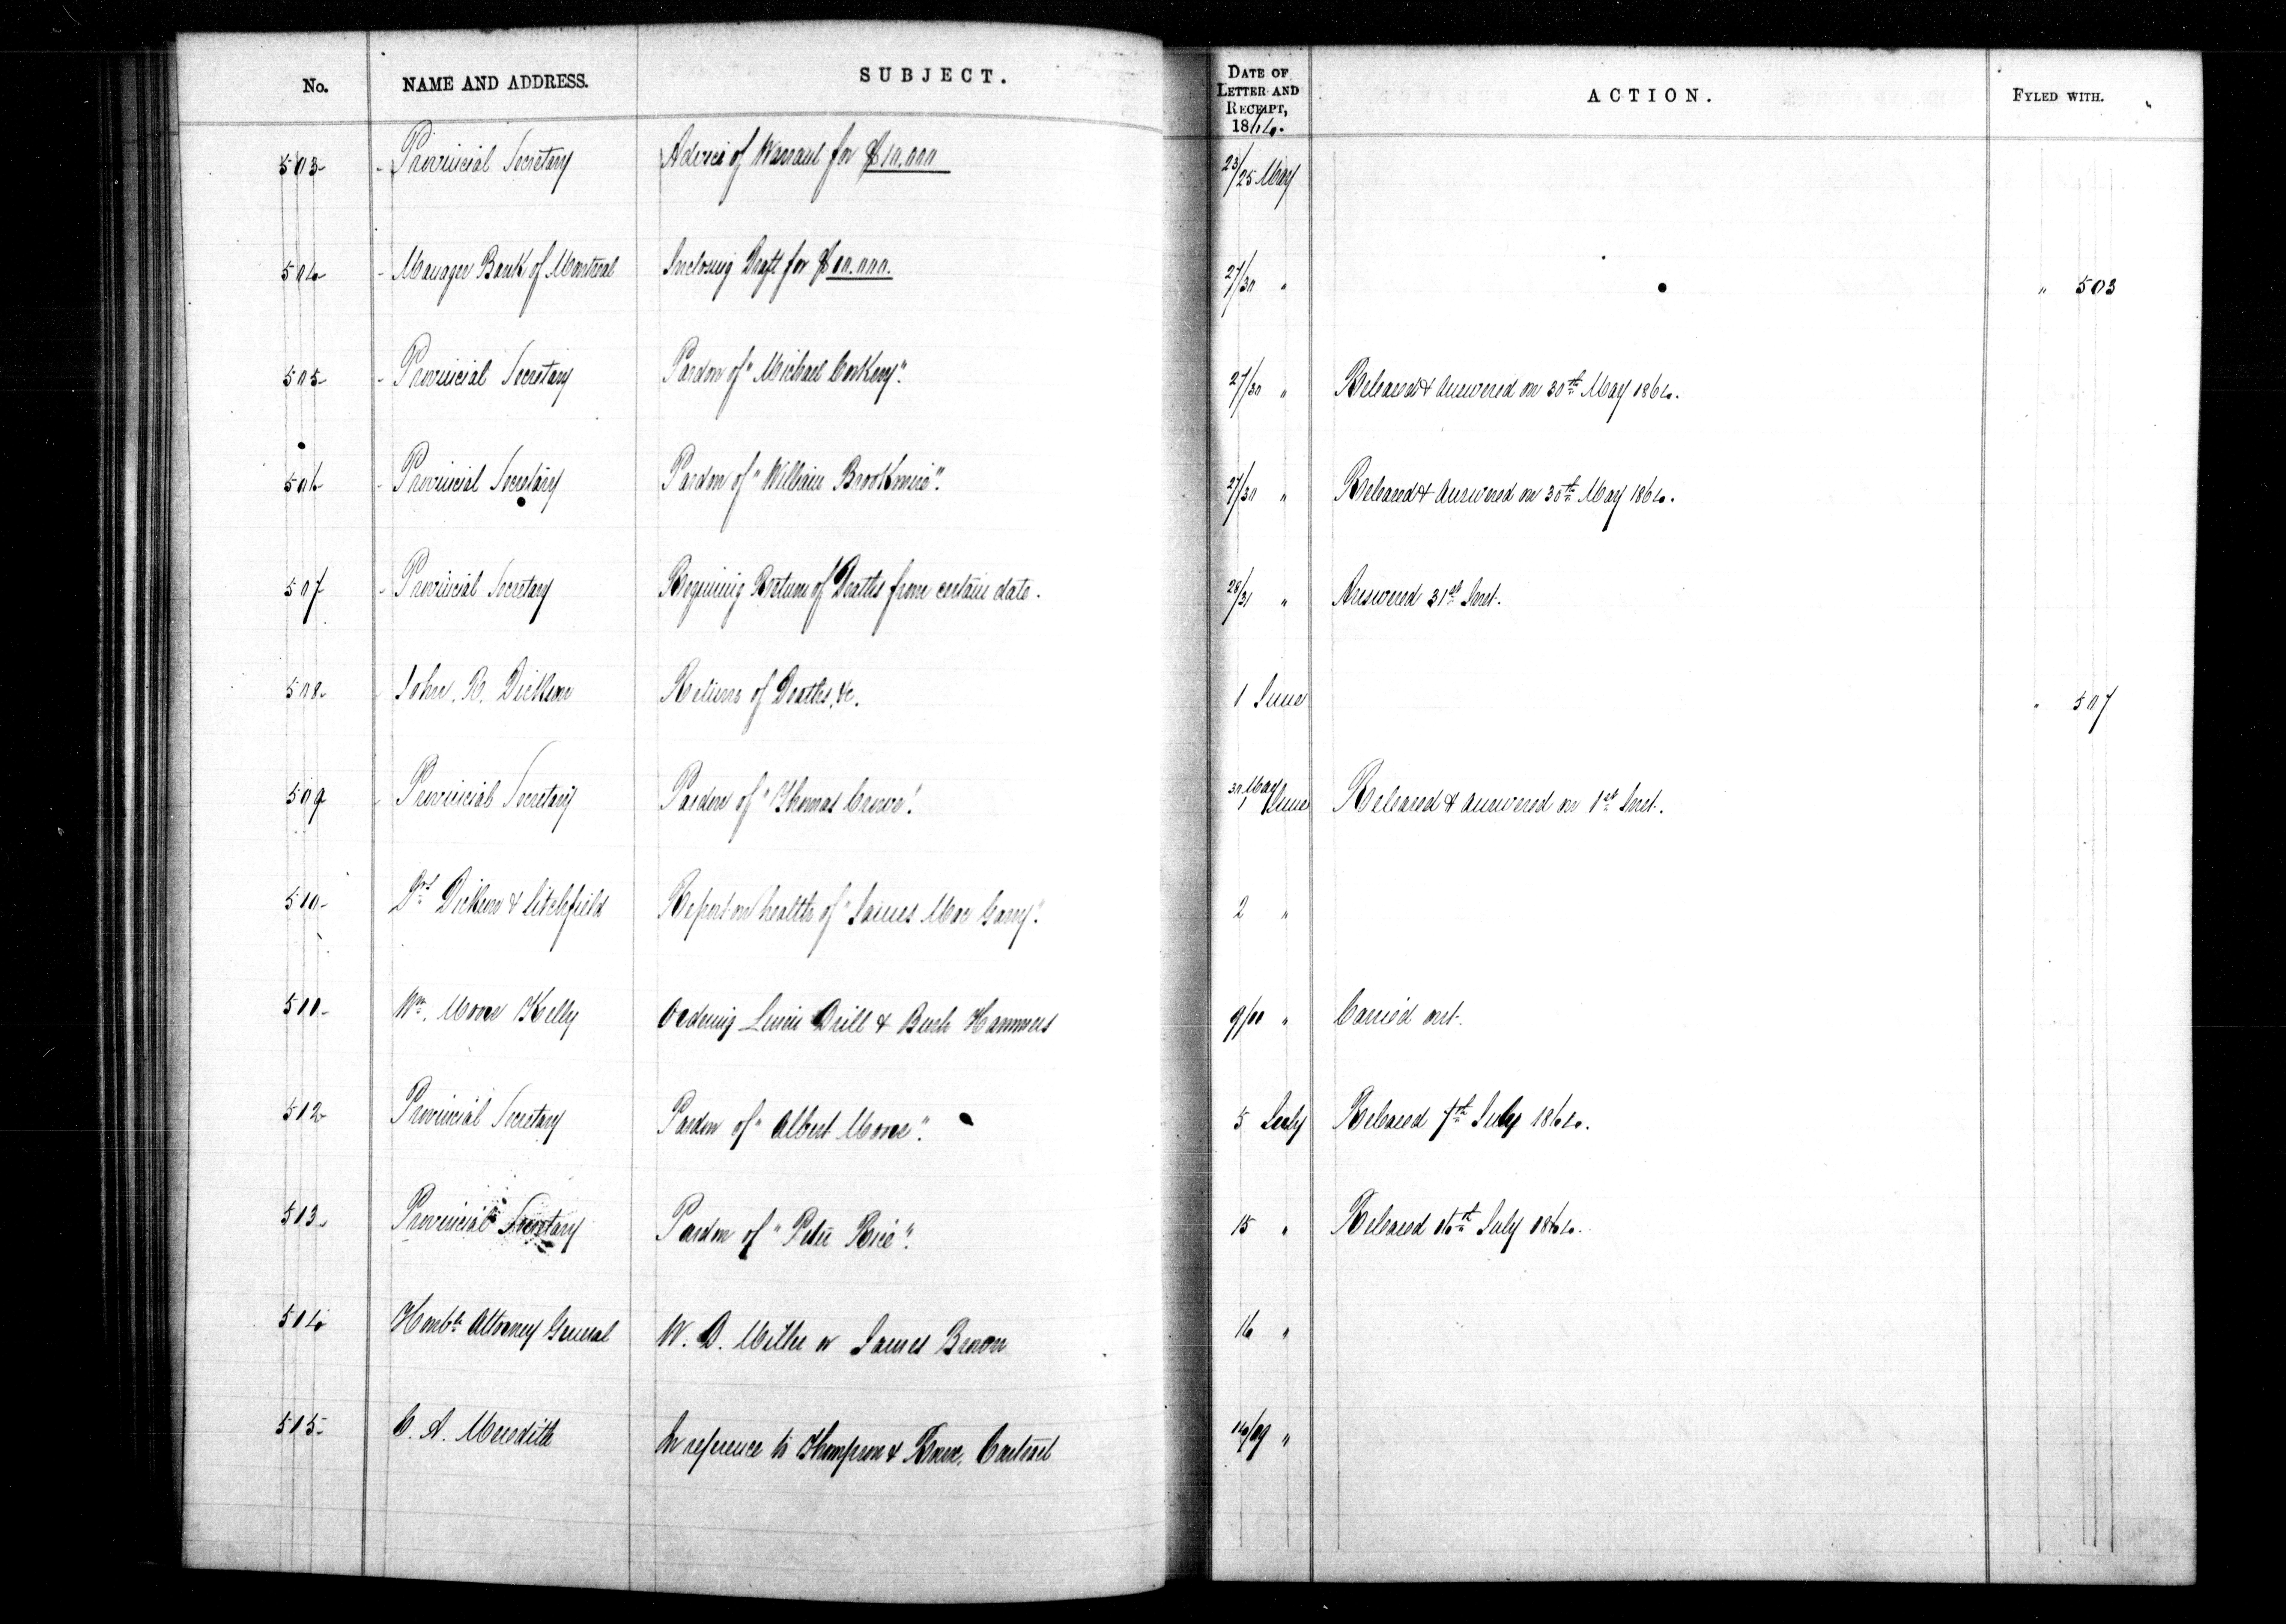 No. NAME AND ADDRESS. SUBJECT. DATE OF LETTER AND RECEIPT, 1864. ACTION. FYLED WITH.
503 Provincial Secretary Advice of Warrant for $10,000 23/25 May
504 Manager Bank of Montreal Inclosing Draft for $10.000. 27/30 " " 503
505 Provincial Secretary Pardon of "Michael Corkery". 27/30 " Released & Answered on 30th May 1864.
506 Provincial Secretary Pardon of "William Brookmire". 27/30 " Released & Answered on 30th May 1864.
507 Provincial Secretary Requiring Return of Deaths from certain date. 28/31 " Answered 31st Inst.
508 John. R. Dickson Returns of Deaths, &c. 1 June " 507
509 Provincial Secretary Pardon of "Thomas Crowe". 30 May/1 June Released & Answered on 1st Inst.
510 Drs Dickson & Litchfield Report on health of "James Mac Garry". 2 "
511 Wm. Moore Kelly Ordering Lewis Drill & Bush Hammers 9/10 " Carried out.
512 Provincial Secretary Pardon of "Albert Moore". 5 July Released 7th July 1864.
513 Provincial Secretary Pardon of "Peter Rice". 15 " Released 16th July 1864.
514 Honble Attorney General W. D. Miller or James Brown 16 "
515 C. A. Meredith In reference to Thompson & Contract 14/19 "